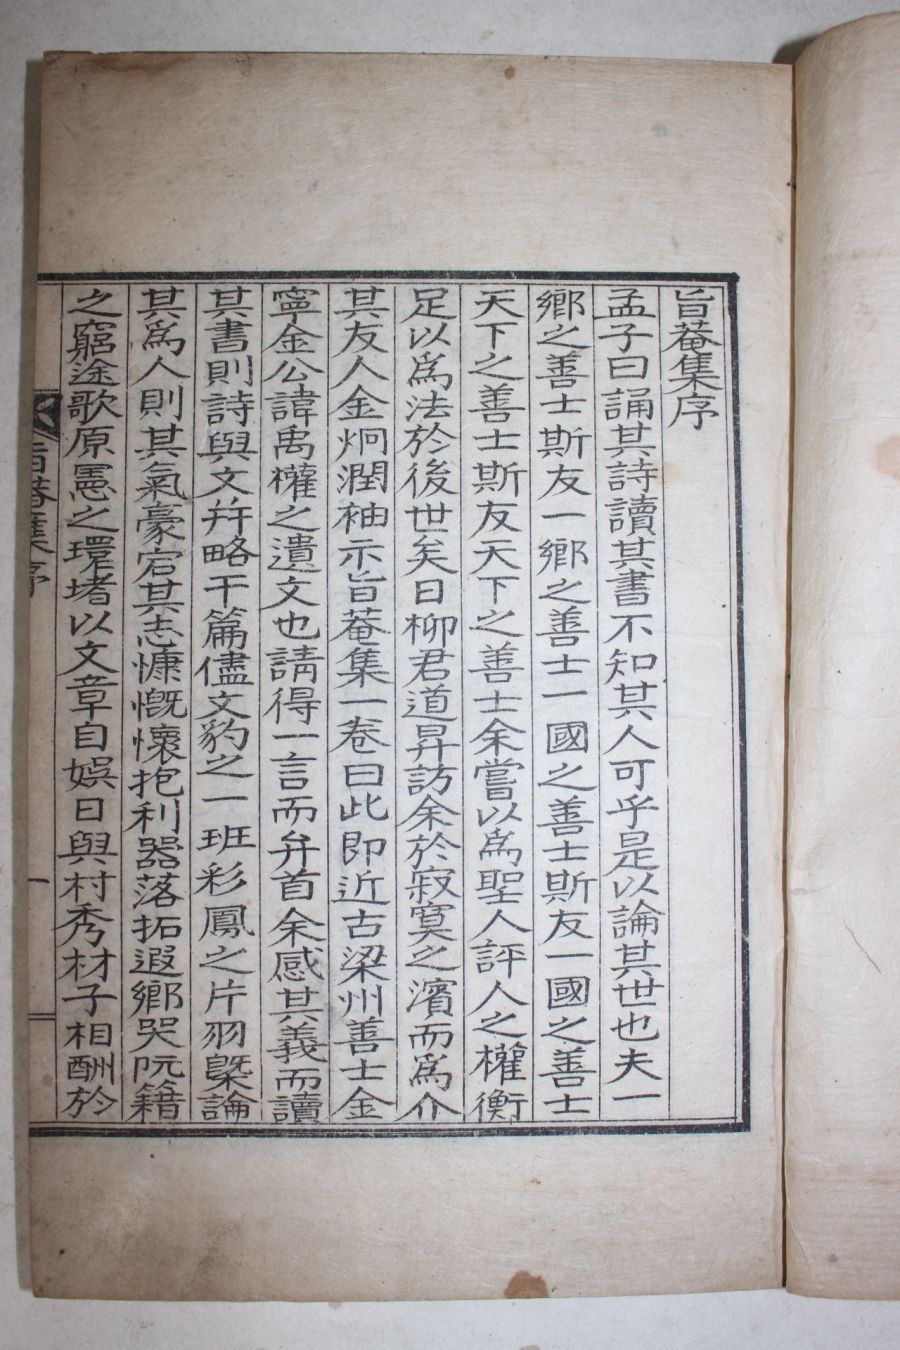 旨菴集序
孟子曰誦其詩讀其書不知其人可乎是以論其世也夫一
鄉之善士斯友一鄉之善士一國之善士斯友一國之善士
天下之善士斯友天下之善士余嘗以爲聖人評人之權衡
足以爲法於後世矣日柳君道昇訪余於寂寞之濱而爲介
其友人金炯潤袖示旨菴集一卷曰此即近古梁州善士金
寧金公諱禹權之遺文也請得一言而弁首余感其義而讀
其書則詩與文幷略干篇儘文豹之一班彩鳳之片羽槩論
其爲人則其氣豪宕其志慷慨懷抱利器落拓遐鄉哭阮籍
之窮途歌原憲之環堵以文章自娛日與村秀材子相酬於
旨菴集序
一